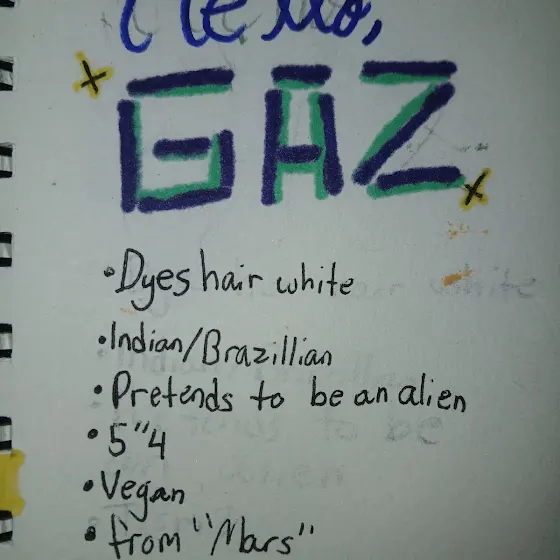 Hello,
GAZ
• Dyes hair white
• Indian/Brazillian
• Pretends to be an alien
• 5"4
• Vegan
• from "Mars"